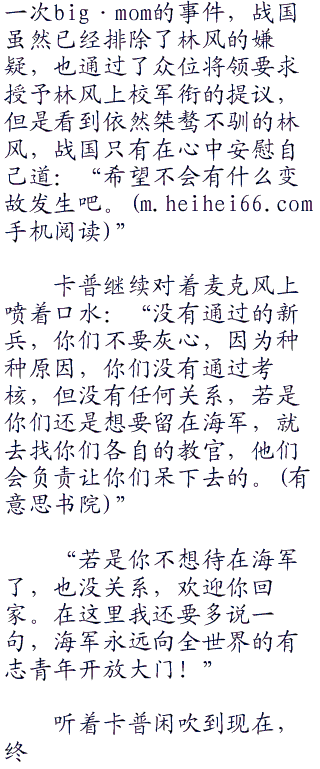 一次big·mom的事件，战国
虽然已经排除了林风的嫌
疑，也通过了众位将领要求
授予林风上校军衔的提议，
但是看到依然桀骜不驯的林
风，战国只有在心中安慰自
己道：“希望不会有什么变
故发生吧。(m.heihei66.com
手机阅读)”
卡普继续对着麦克风上
喷着口水：“没有通过的新
兵，你们不要灰心，因为种
种原因，你们没有通过考
核，但没有任何关系，若是
你们还是想要留在海军，就
去找你们各自的教官，他们
会负责让你们呆下去的。(有
意思书院)”
“若是你不想待在海军
了，也没关系，欢迎你回
家。在这里我还要多说一
句，海军永远向全世界的有
志青年开放大门！”
听着卡普闲吹到现在，
终